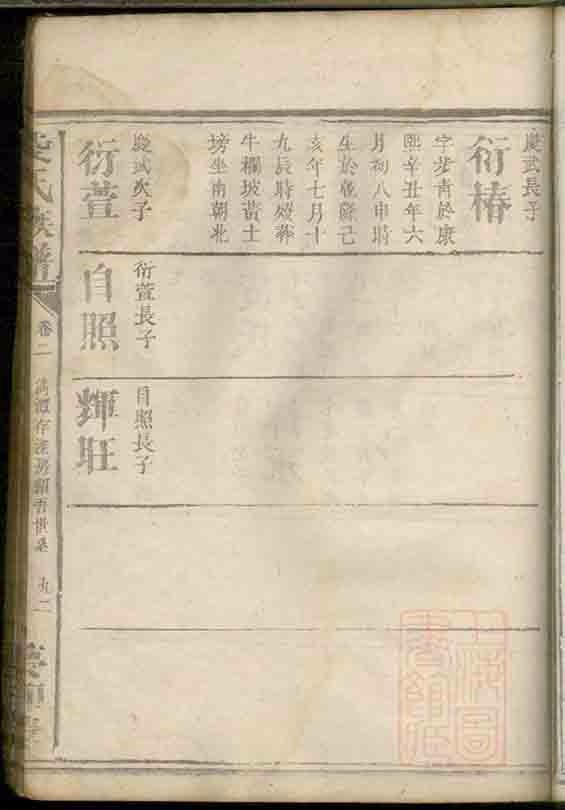 慶武長子
衍椿
字茂青於康
熙辛丑年六
月初八申時
生於乾隆己
亥年七月十
九辰時歿葬
牛欄坡黃土
塝坐南朝北
慶武次子
衍萱
衍萱長子
自照
自照長子
輝旺
氏族譜
卷二
九二
上海圖
書館藏